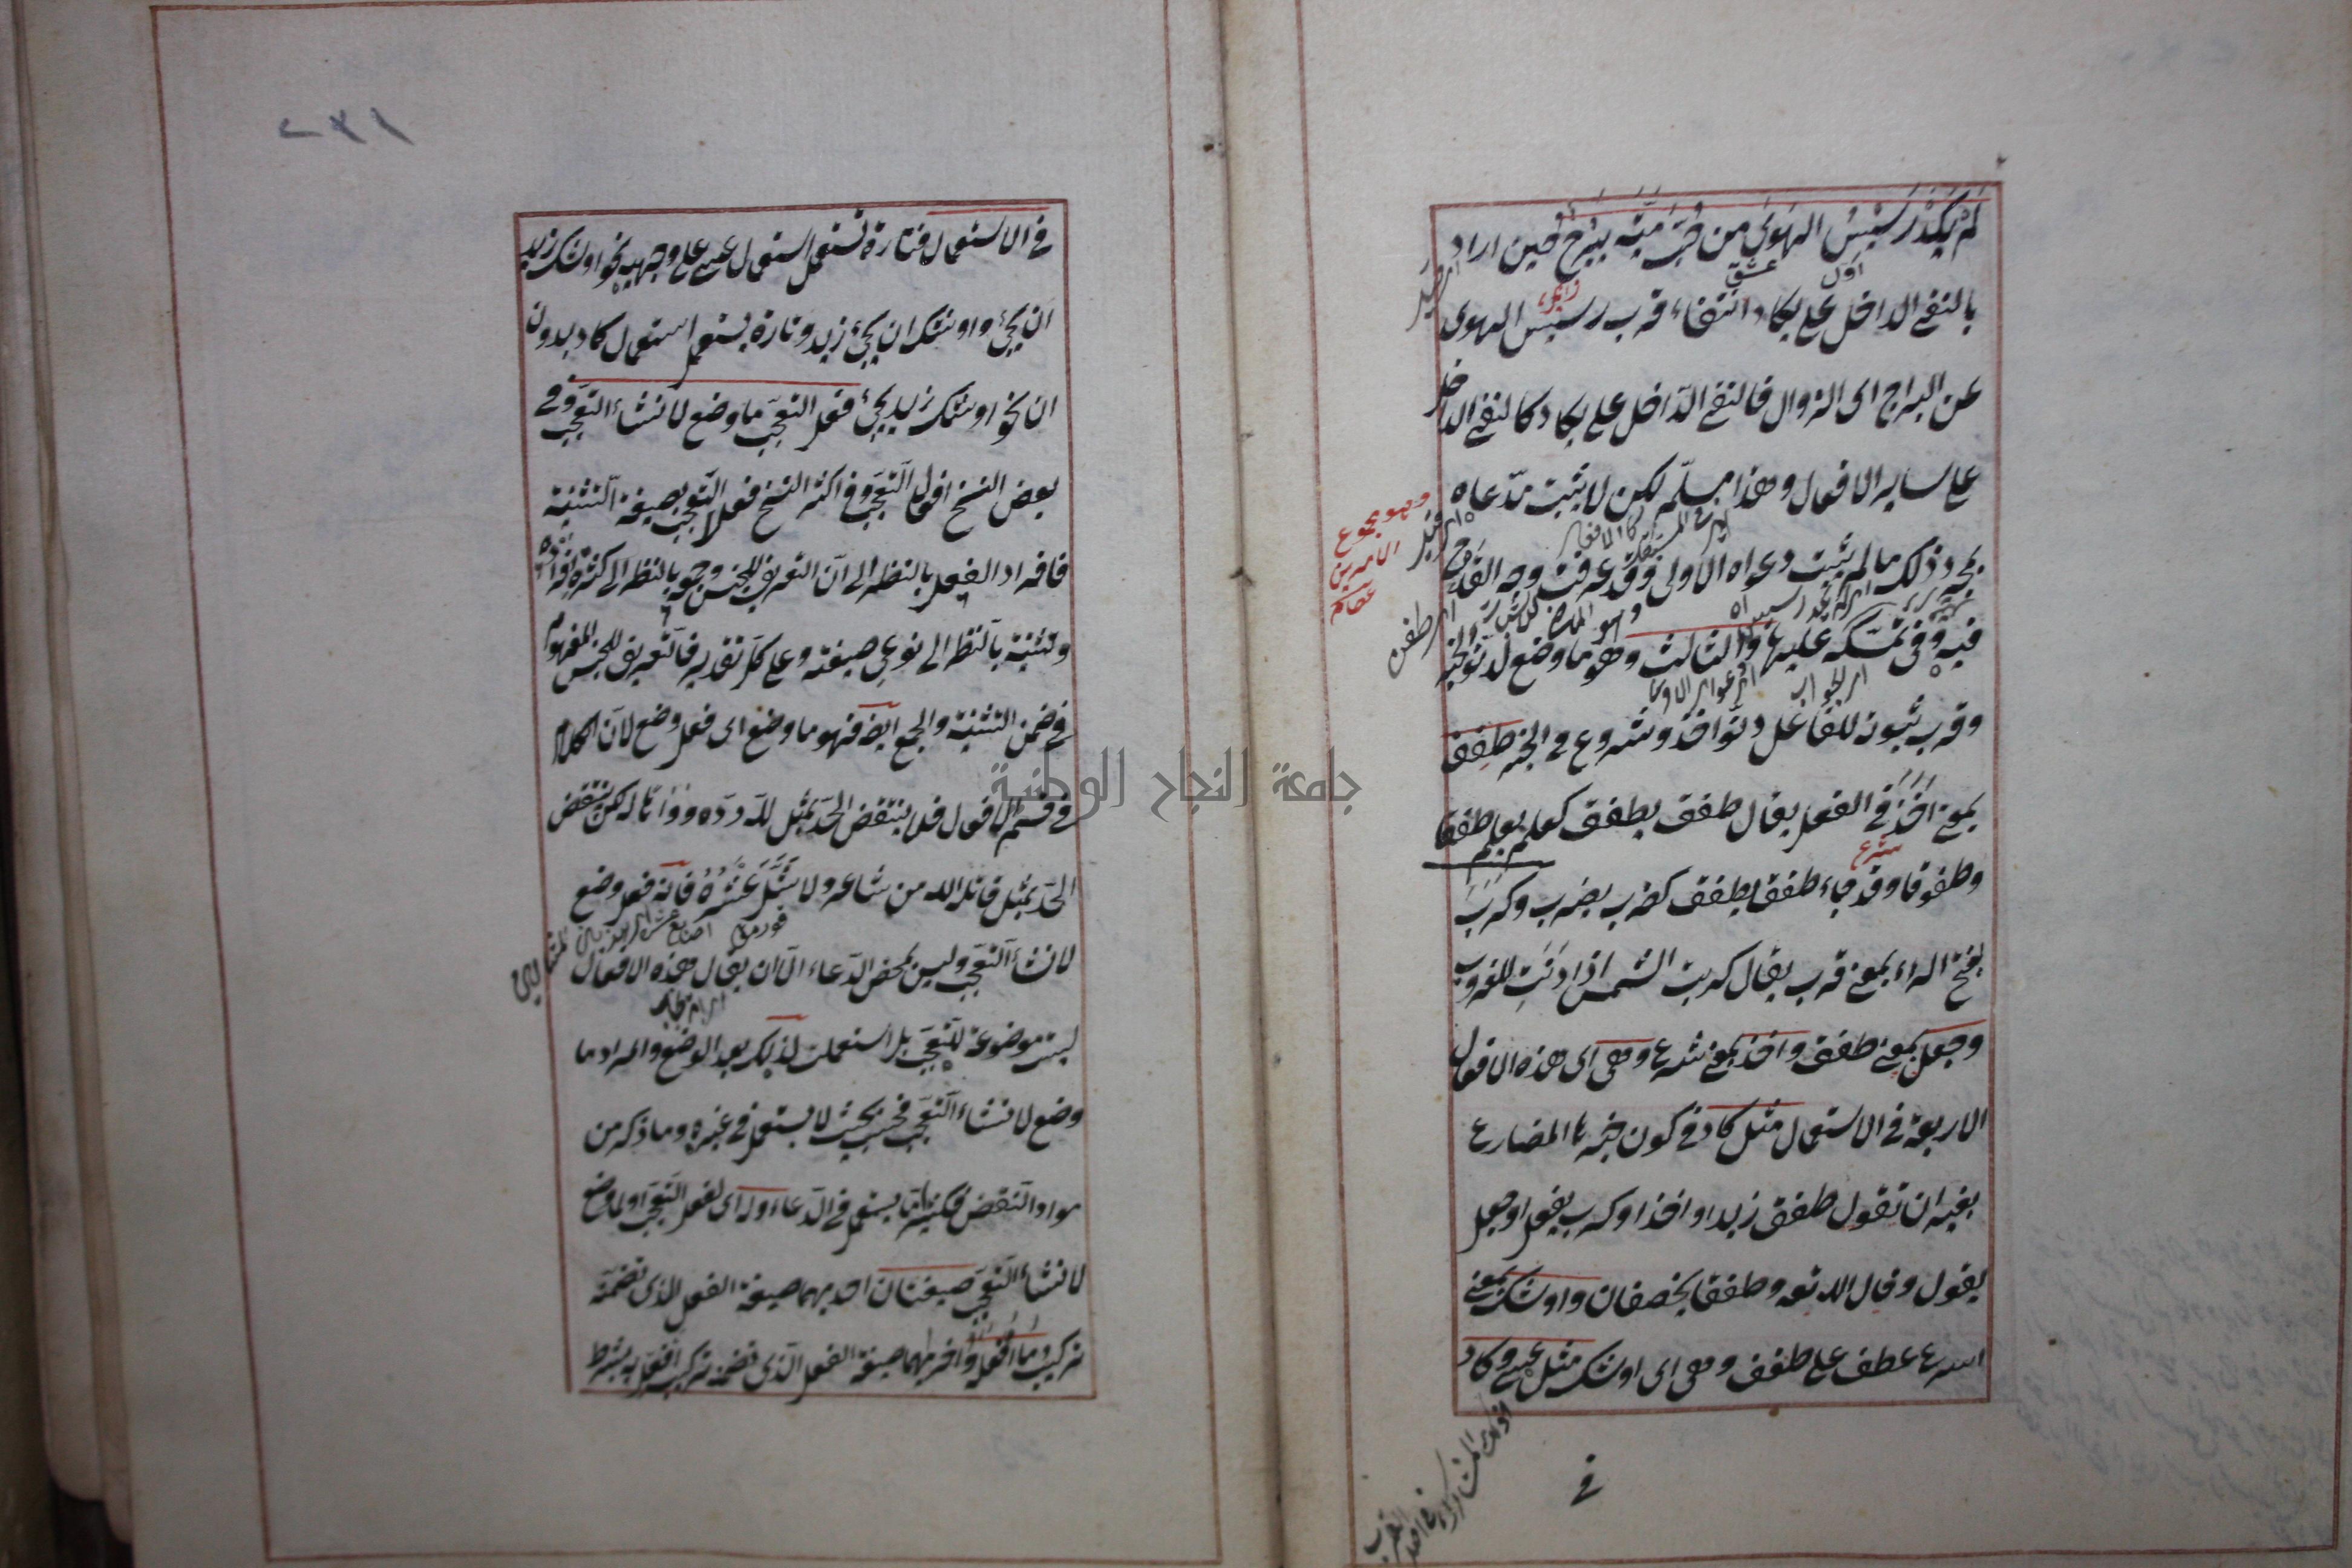 لَمْ يَكَدْ رَسِيْسُ الهَوٰى مِن حُبِّ مَيَّة يَبْرَحُ فحين اراد
بالنفي الداخل على يكاد انتفاء قرب رسيس الهوى
عن البراح اى الزوال فالنفي الدّاخل على يكاد كالنفي الداخل
على ساير الافعال وهذا مسلّم لكن لا يثبت مدّعاه
بمجرد ذلك ما لم يثبت دعواه الاولى وقد عرفت وجه القدح
فيه وفى تمسّكه عليها والثالث وهو ما وضع لدنوّ الخبر
وقرب ثبوته للفاعل دنوّ اخذ وشروع في الخبر طفق
بمعنى اَخَذَ في الفعل يقال طفق يطفق كعلم يعلم طفقا
وطفوقا وقد جاء طفق يطفق كضرب يضرب وكَرَبَ
بفتح الراء بمعنى قرب يقال كربت الشمس اذا دَنَتِ للغروب
وجعل بمعنى طفق واخذ بمعنى شرع وهى اى هذه الافعال
الاربعة في الاستعمال مثل كاد في كون خبرها المضارع
بغير ان تقول طفق زيد او اخذ او كرب يفعل او جعل
يقول وقال الله تعه وطفقا يخصفان واوشك بمعنى
اسرع عطف على طفق وهى اى اوشك مثل عسى وكاد
في
وهو مجموع
الامرين
عصام
في الاستعمال فتارة تستعمل استعمال عسى على وجهيه نحو اوشك زيد
ان يجئ واوشك ان يجئ زيد وتارة يستعمل استعمال كاد بدون
ان نحو اوشك زيد يجئ فعل التعجب ما وضع لانشاء التعجب وفي
بعض النسخ افعال التعجب وفي اكثر النسخ فعلا التعجب بصيغة التثنية
فافراد الفعل بالنظر الى انّ التعريف للجنس وجمعه بالنظر الى كثرة افراده
وتثنيته بالنظر الى نوعي صيغته وعلى كل تقدير فالتعريف للجنس المفهوم
في ضمن التثنية والجمع ايضا فهو ما وضع اى فعل وضع لانّ الكلام
في قسم الافعال فلا ينتقض الحدّ بمثل لله درّه وواهًا له لكن ينتقض
الحدّ بمثل قاتله الله من شاعر ولا شَلَّ عَشْرُهُ فانه فعل وضع
لانشاء التعجب وليس بمحض الدّعاء الّا ان يقال هذه الافعال
ليست موضوعة للتعجب بل استعملت لذلك بعد الوضع والمراد ما
وضع لانشاء التعجب فحسب بحيث لا يستعمل في غيره وما ذكر من
مواد النقض فكثيرا ما يستعمل في الدّعاء وله اى لفعل التعجب او لما وضع
لانشاء التعجب صيغتان احديهما صيغة الفعل الذى تضمّنه
تركيب ما اَفْعَلَهُ واخريهما صيغة الفعل الذى تضمّنه تركيب افعل به بشرط
جامعة النجاح الوطنية